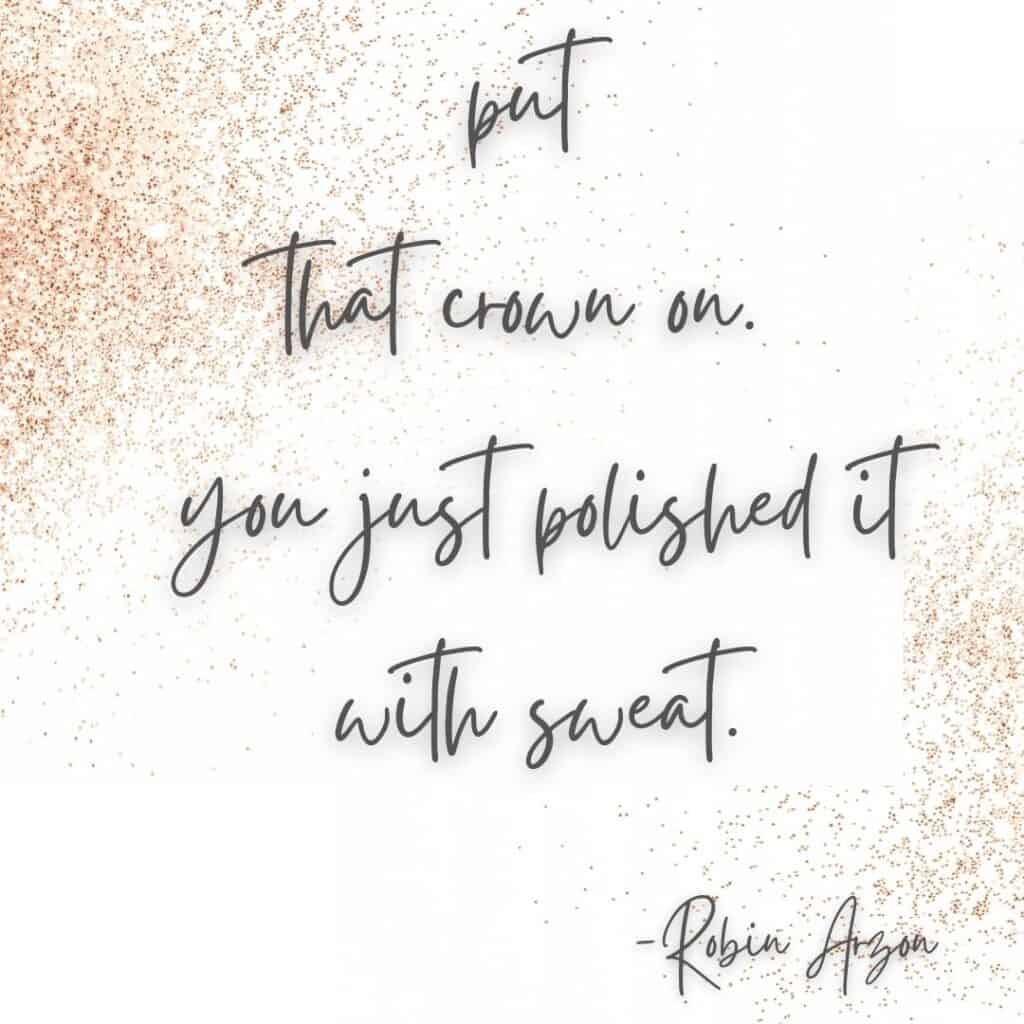 put
that crown on.
you just polished it
with sweat.
-Robin Arzon